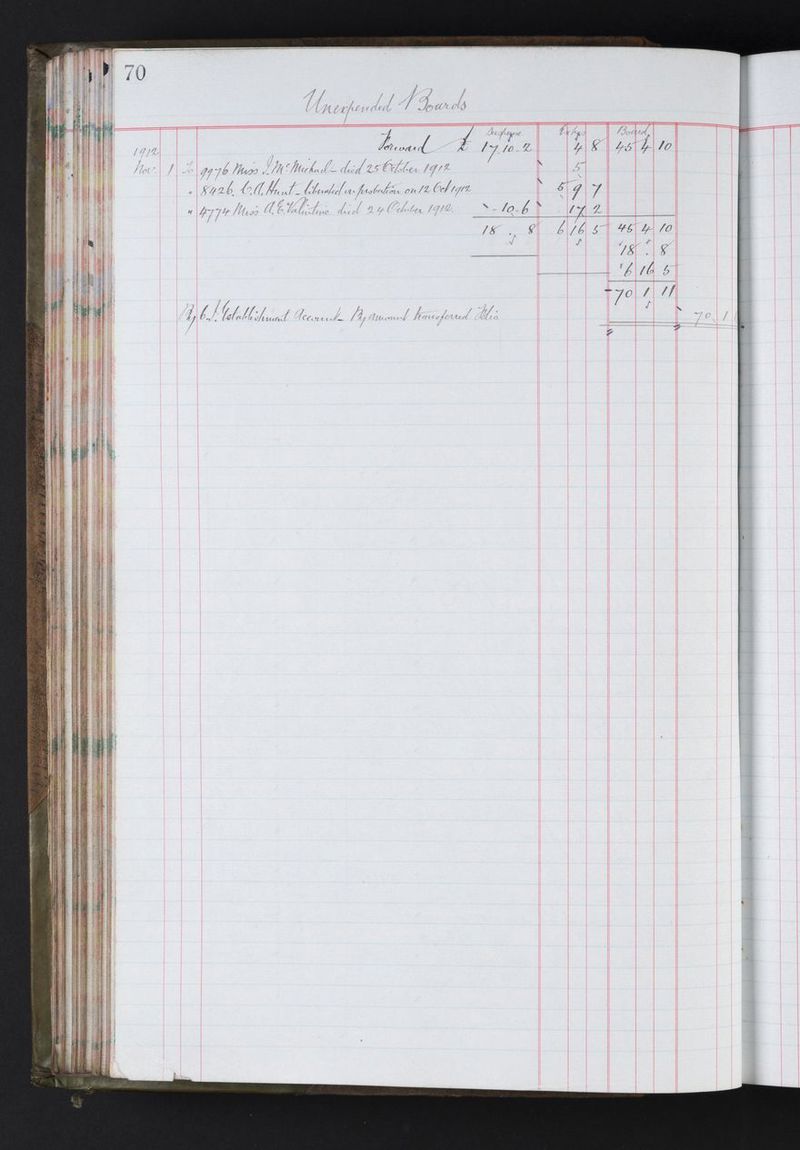 70
Unexpended Boards
Boards
Forward £ 17 . 10 . 2 4 8 45 4 10
1912
Nov. 1 To 9976 Miss J. McMichael - died 25 October 1912 5
" 8426. C. A. Hunt - liberated on probation on 12 Oct 1912 5 9 7
" 4774 Miss A. E. Valentine died 24 October 1912. - 10 . 6 17 2
18 . 8 6 16 5 45 4 10
18 . 8
6 16 5
70 1 11
By C. I. Establishment Account - By amount transferred Folio 70 1